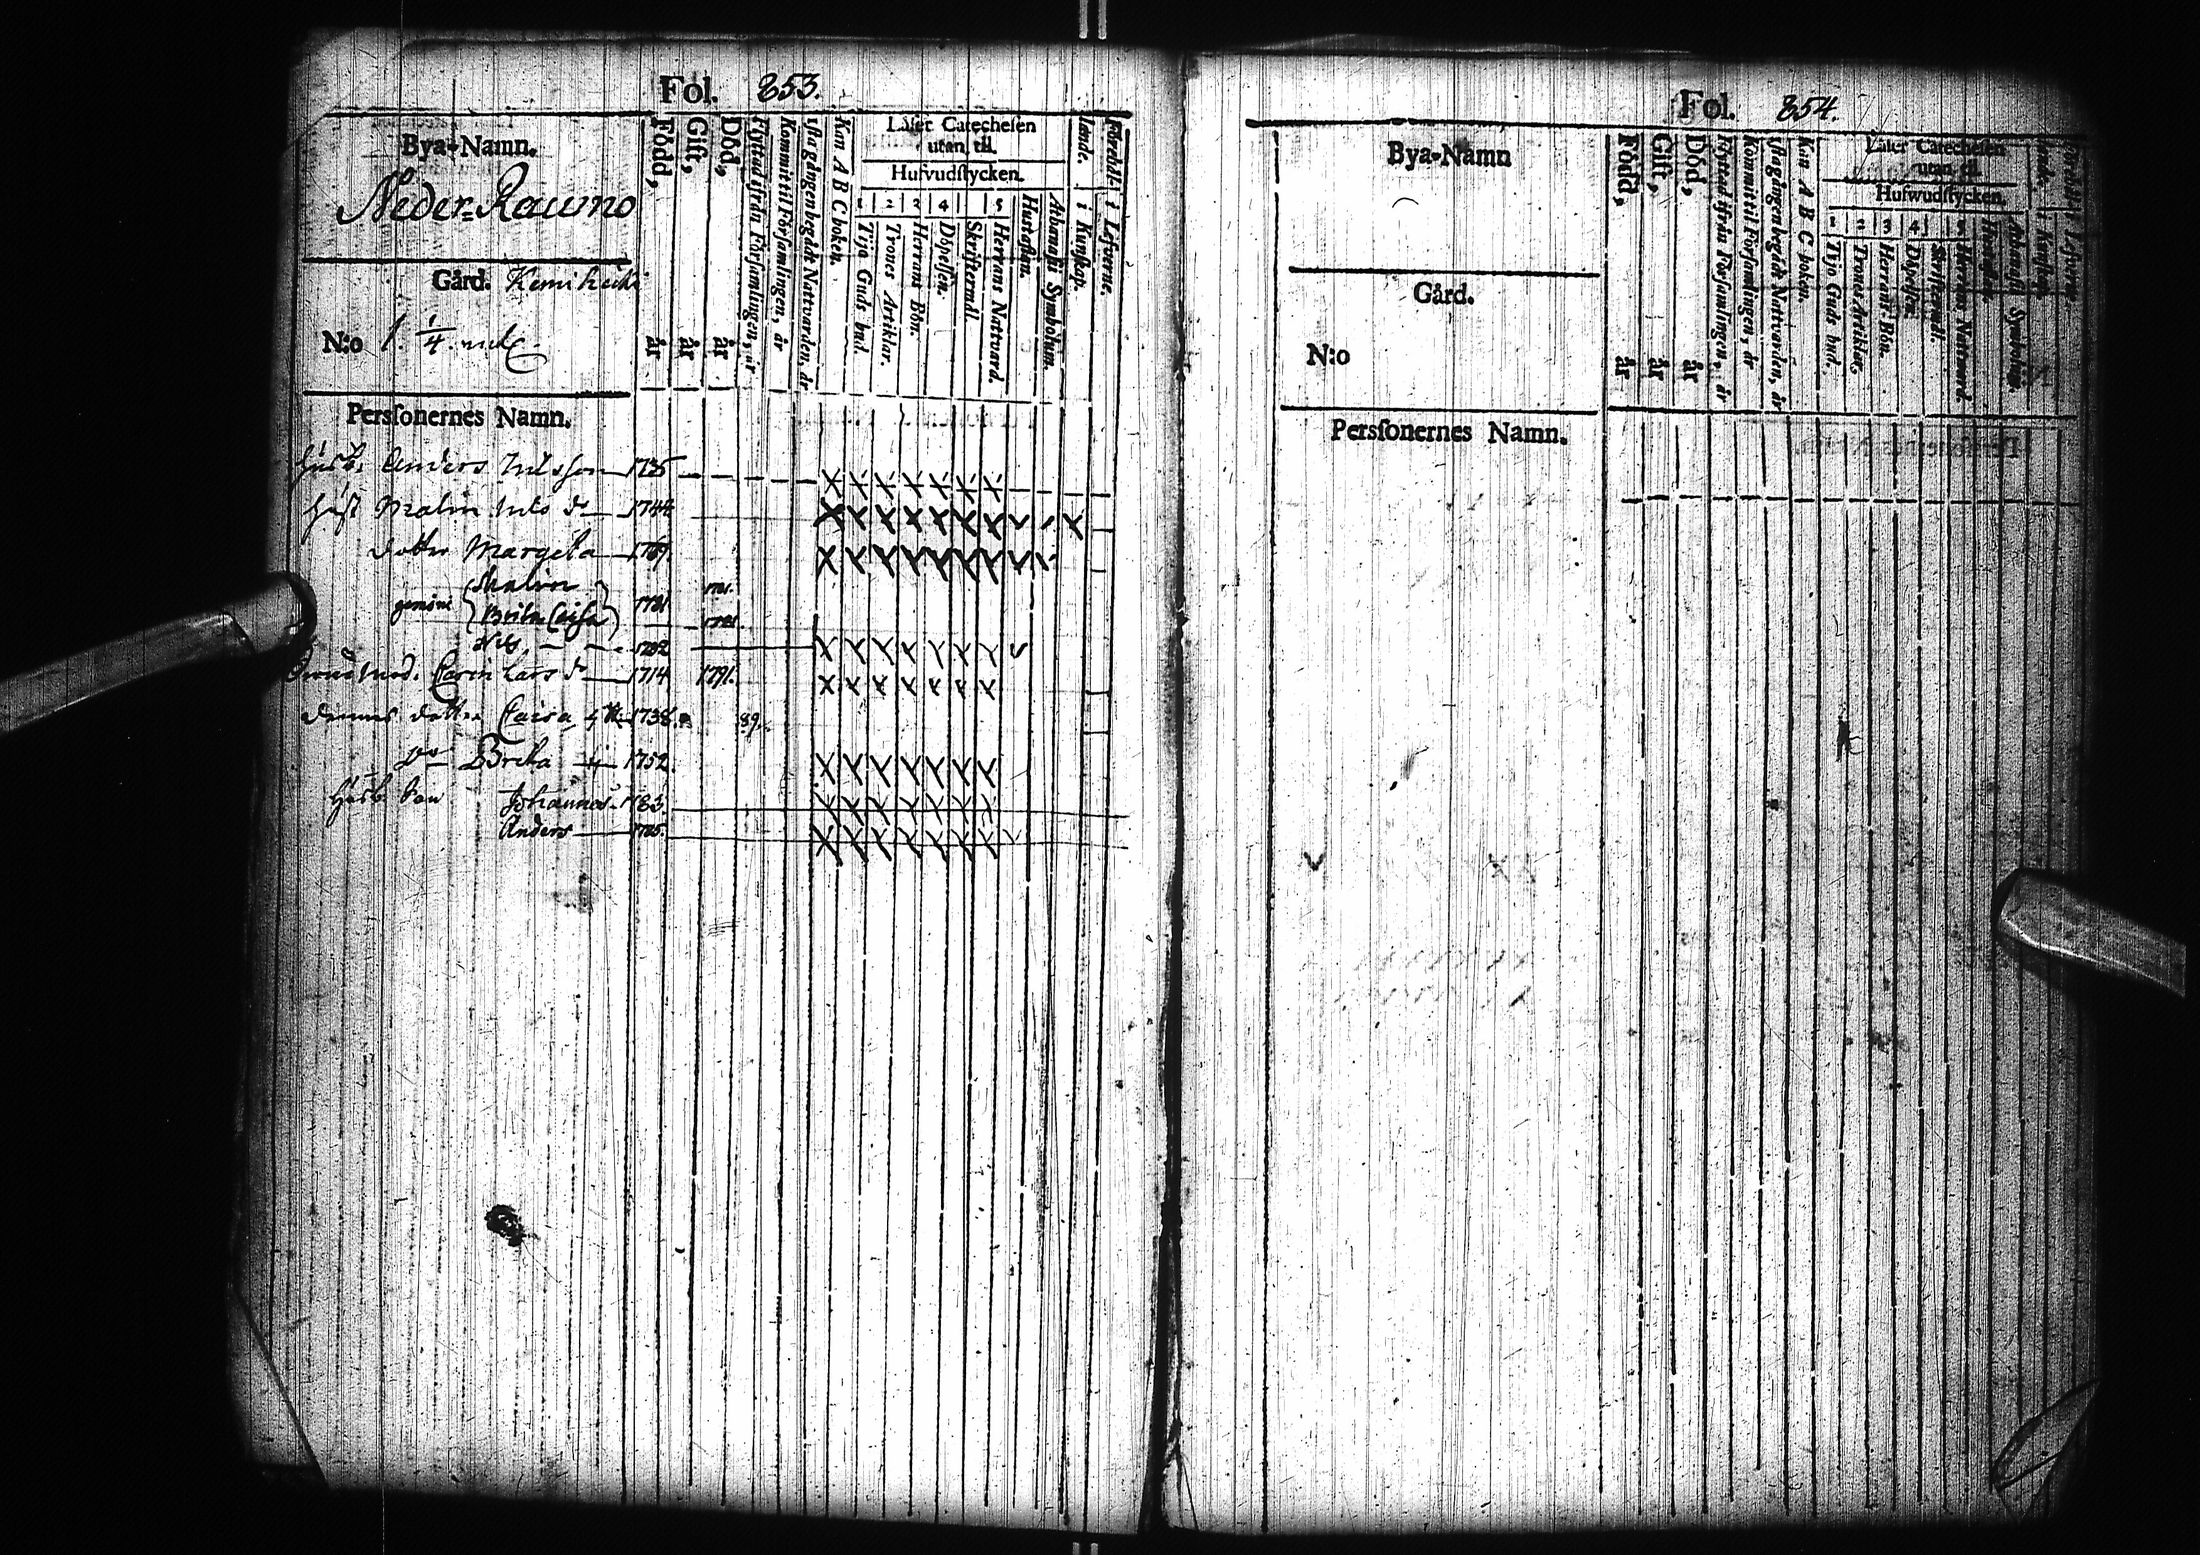 Fol. 853.
Bya-Namn.
Neder-Rauno
Gård. Kemiheiki
N:o 1. 1/4. mtl
Född, år
Gift, år
Död, år
Flyttad ifrån Församlingen, år
Kommit til Församlingen, år
1sta gången begådt Nattvarden, år
Kan A B C boken.
Läser Catechesen
utan til.
Hufvudstycken.
1 2 3 4 5
Tijo Guds bud.
Trones Artiklar.
Herrans Bön.
Döpelsen.
Skriftermål.
Herrans Nattvard.
Hustaflan.
Athanasii Symbolum.
i Kunskap.
i Lefverne.
Personernes Namn.
Husb. Anders Nilsson 1735
Hust Malin Nils dr 1744
dotter Margeta 1769.
gemini Malin 1781 1781.
Brita Caisa
Nils 1782
Carin Lars dr 1714 1791.
dennes dotter Caisa 1738. 89.
Brita 1752.
Husb Son Johannes 1783.
Anders 1785.
Fol. 854.
Bya-Namn
Gård.
N:o
Född, år
Gift, år
Död, år
Flyttad ifrån Församlingen, år
Kommit til Församlingen, år
1sta gången begådt Nattvarden, år
Kan A B C boken.
Läser Catechesen
utan til.
Hufwudstycken.
1 2 3 4 5
Tijo Guds bud.
Trones Artiklar.
Herrans Bön.
Döpelsen.
Skriftermål.
Herrans Nattvard.
Personernes Namn.